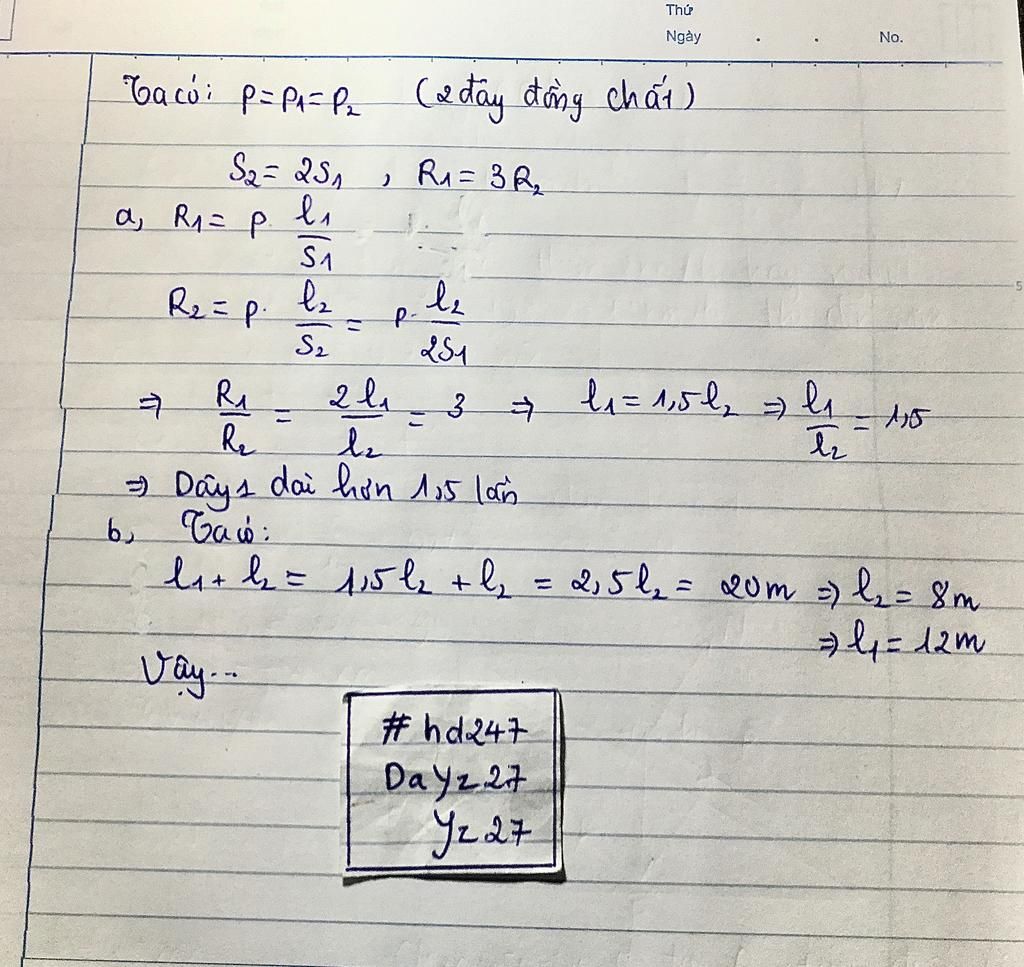 Thứ
Ngày . . No.
Ta có: ρ = ρ1 = ρ2 (2 dây đồng chất)
S2 = 2S1 , R1 = 3R2
a, R1 = ρ. l1/S1
R2 = ρ. l2/S2 = ρ. l2/2S1
⇒ R1/R2 = 2l1/l2 = 3 ⇒ l1 = 1,5l2 ⇒ l1/l2 = 1,5
⇒ Dây 1 dài hơn 1,5 lần
b, Ta có:
l1 + l2 = 1,5l2 + l2 = 2,5l2 = 20m ⇒ l2 = 8m
⇒ l1 = 12m
Vậy...
# hd247
DaYz27
Yz27
5